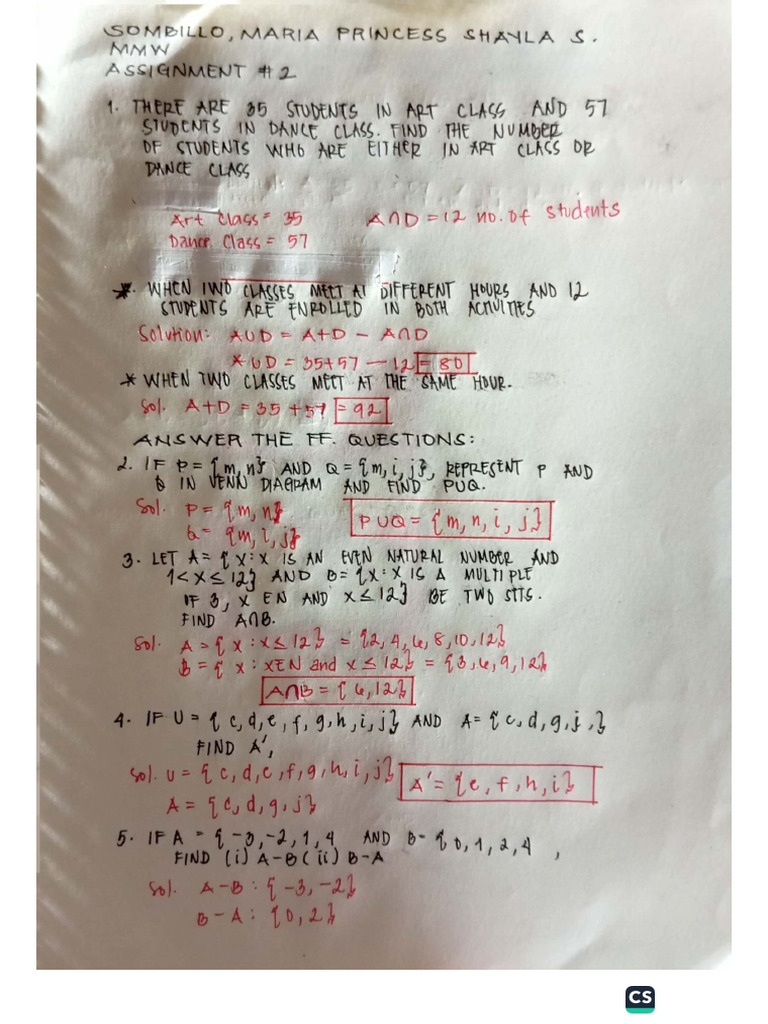 SOMBILLO, MARIA PRINCESS SHAYLA S.
MMW
ASSIGNMENT #2
1. THERE ARE 35 STUDENTS IN ART CLASS AND 57
STUDENTS IN DANCE CLASS. FIND THE NUMBER
OF STUDENTS WHO ARE EITHER IN ART CLASS OR
DANCE CLASS
Art Class = 35 A∩D = 12 no. of students
Dance Class = 57
*. WHEN TWO CLASSES MEET AT DIFFERENT HOURS AND 12
STUDENTS ARE ENROLLED IN BOTH ACTIVITIES
Solution: AUD = A+D - A∩D
*UD = 35+57 - 12 = 80
* WHEN TWO CLASSES MEET AT THE SAME HOUR.
Sol. A+D = 35 + 57 = 92
ANSWER THE FF. QUESTIONS:
2. IF P = {m, n} AND Q = {m, i, j}, REPRESENT P AND
Q IN VENN DIAGRAM AND FIND PUQ.
Sol. P = {m, n} PUQ = {m, n, i, j}
Q = {m, i, j}
3. LET A = {x : x IS AN EVEN NATURAL NUMBER AND
1 < x ≤ 12} AND B = {x : x IS A MULTIPLE
IF 3, x EN AND x ≤ 12} BE TWO SETS.
FIND A∩B.
Sol. A = {x : x ≤ 12} = {2, 4, 6, 8, 10, 12}
B = {x : xEN and x ≤ 12} = {3, 6, 9, 12}
A∩B = {6, 12}
4. IF U = {c, d, e, f, g, h, i, j} AND A = {c, d, g, j ,}
FIND A',
Sol. U = {c, d, e, f, g, h, i, j} A' = {e, f, h, i}
A = {c, d, g, j}
5. IF A = {-3, -2, 1, 4 AND B = {0, 1, 2, 4 ,
FIND (i) A-B (ii) B-A
Sol. A-B : {-3, -2}
B-A : {0, 2}
CS